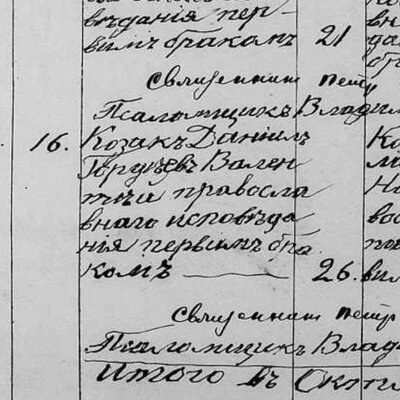 вѣданія пер-
вымъ бракомъ 21
Священникъ Петр
Псаломщикъ Влади
16. Козакъ Даніилъ
Гордѣевъ Вален
тѣй правосла
внаго исповѣда
нія первымъ бра
комъ 26. вм
Священникъ Петр
Псаломщикъ Влад
Итого въ Октя